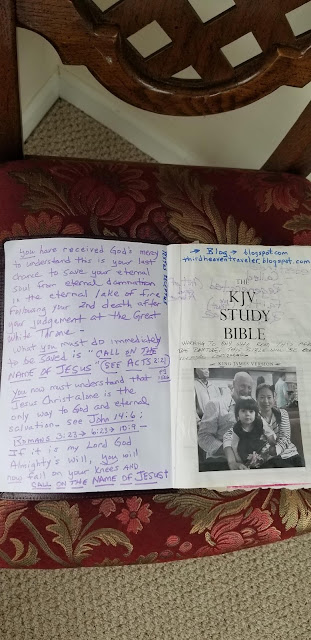 you have received God's mercy
to understand this is your last
chance to save your eternal
soul from eternal damnation
in the eternal lake of fire
following your 2nd death after
your judgement at the Great
White Throne -
What you must do immediately
to be saved is "CALL ON THE
NAME OF JESUS" (SEE ACTS 2:21)
you now must understand that
Jesus Christ alone is the
only way to God and eternal
salvation. see John 14:6;
Romans 3:23 → 6:23 → 10:9 -
If it is my Lord God
Almighty's will, you will
now fall on your knees AND
CALL ON THE NAME OF JESUS!
→ Blog → blogspot.com
thirdheaventraveler.blogspot.com
THE
KJV
STUDY
BIBLE
KING JAMES VERSION